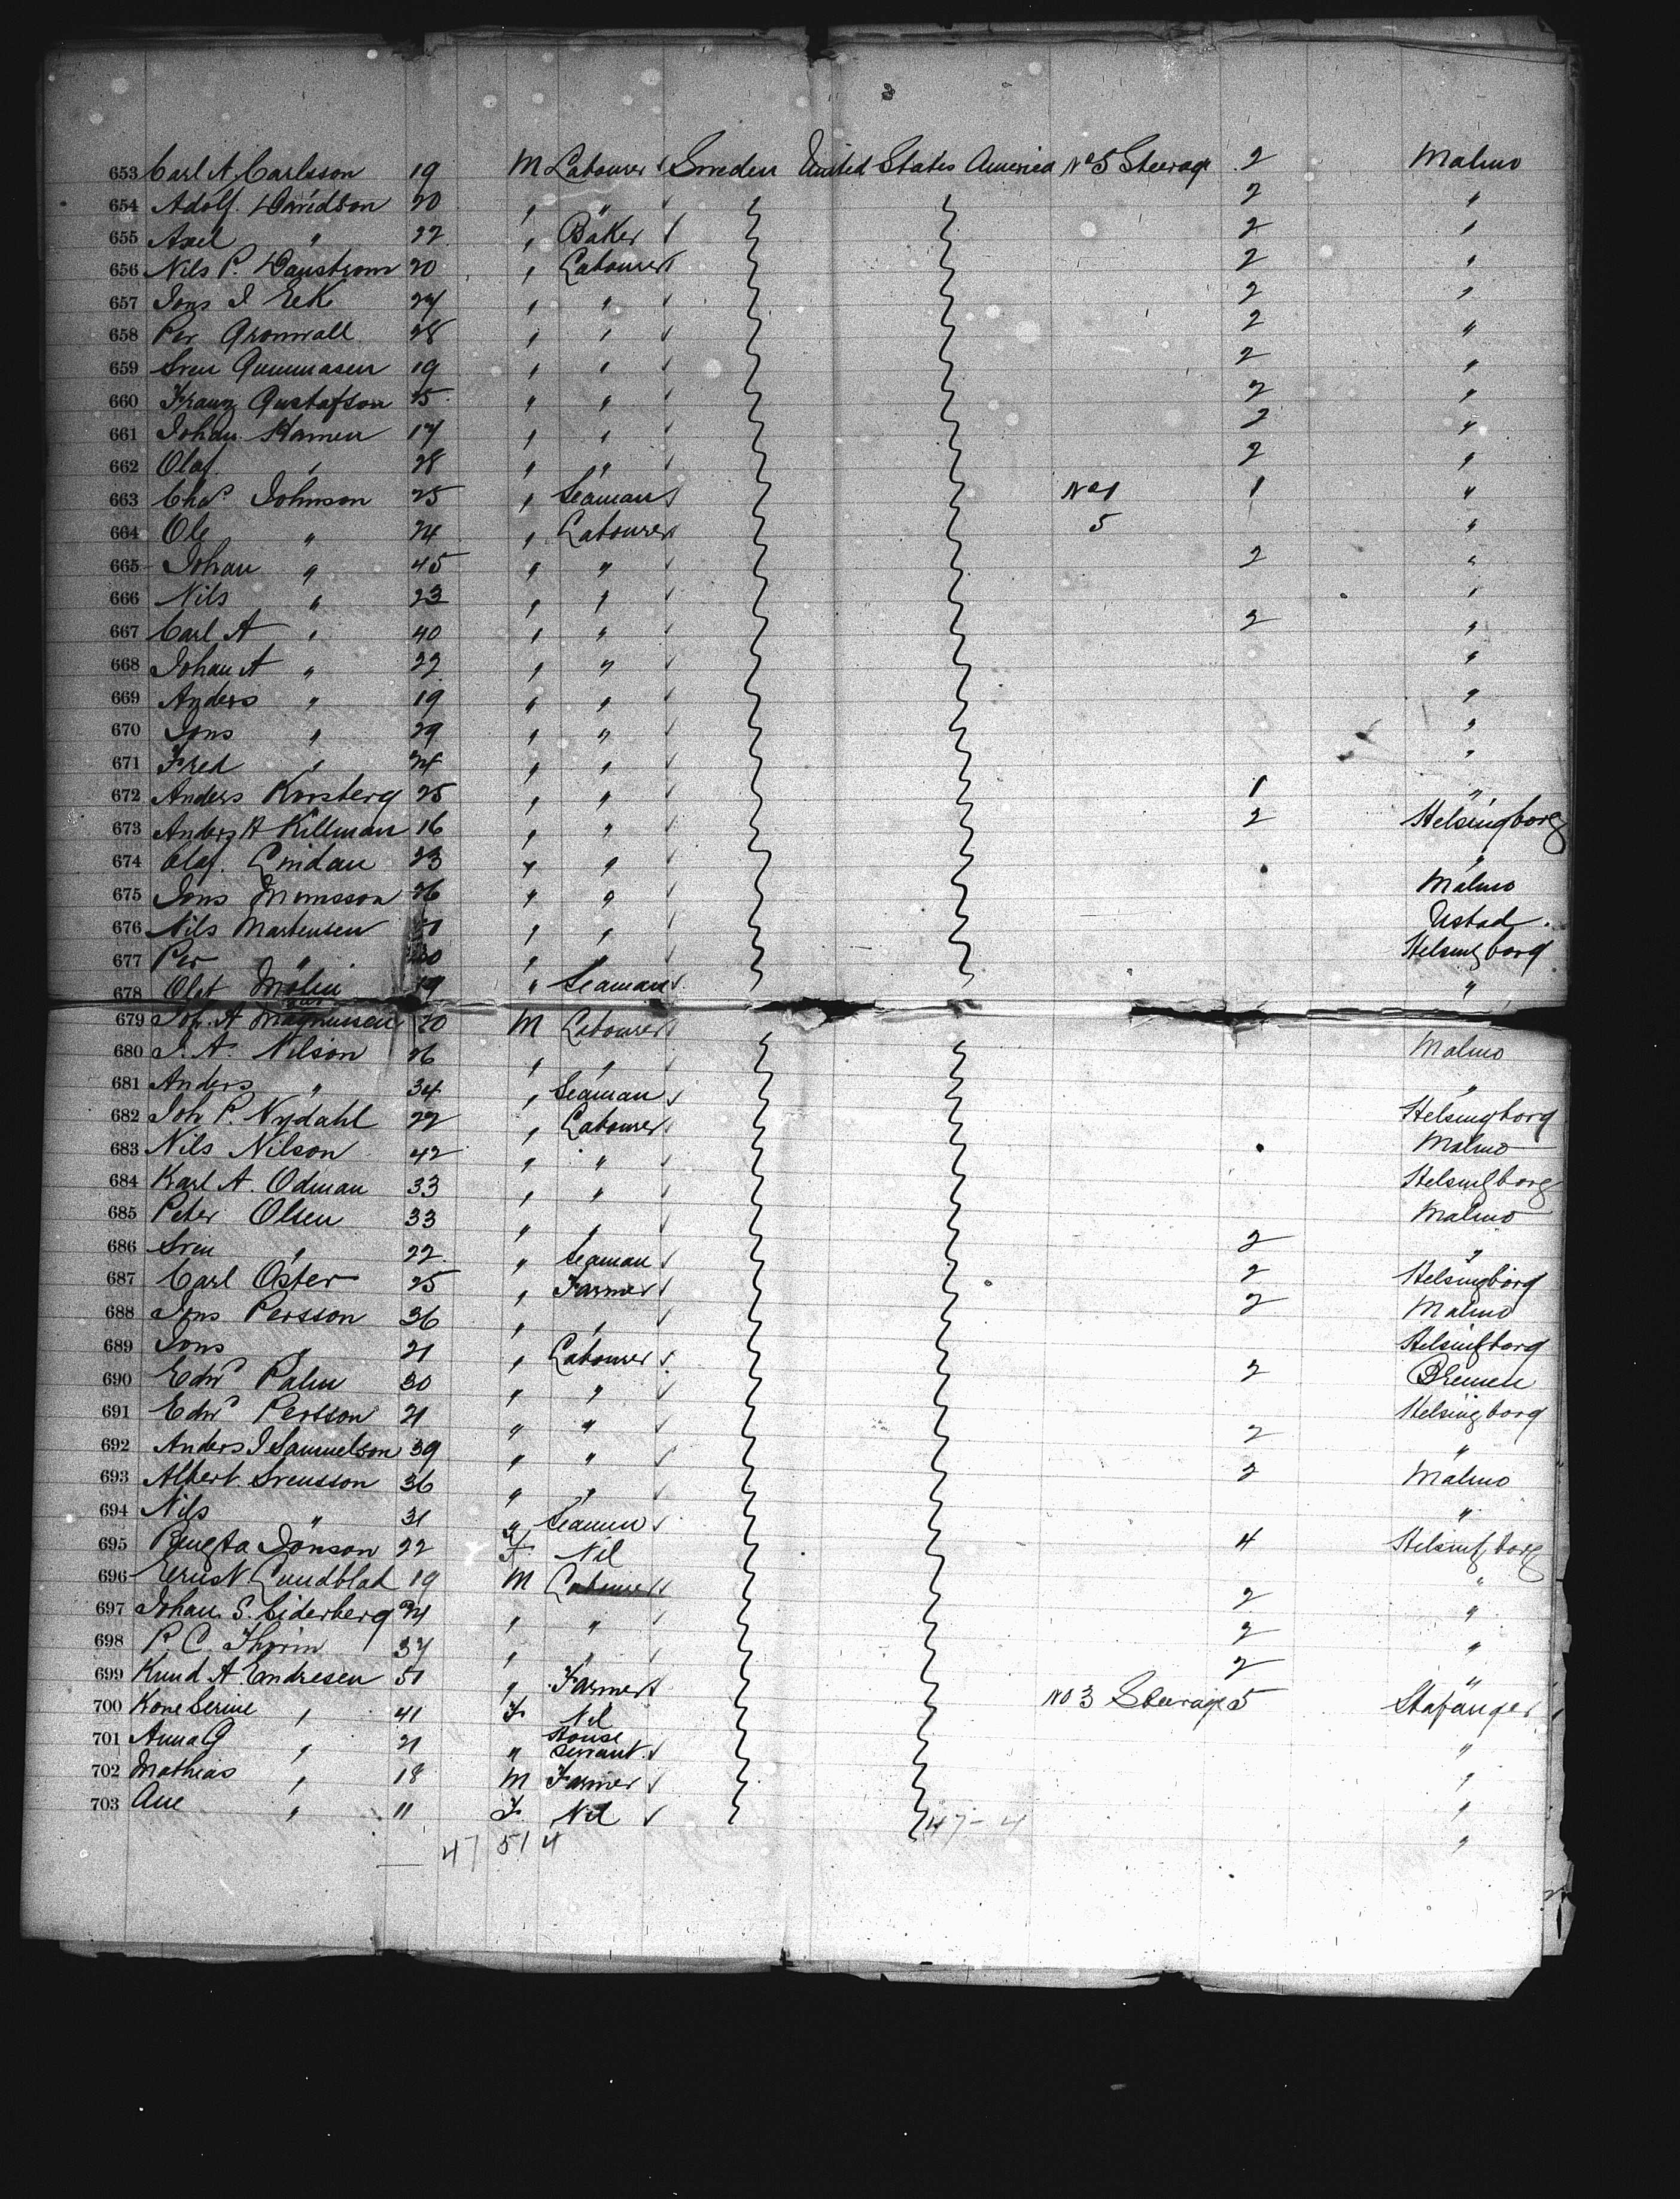 653 Carl A. Carlsson 19 M Labourer Sweden United States America No 5 Steerage 2 Malmo
654 Adolf Davidson 20 " " 2 "
655 Axel " 22 " Baker 2 "
656 Nils P. Danstrom 20 " Labourer 2 "
657 Jons J Eek 24 " " 2 "
658 Per Gronwall 28 " " 2 "
659 Sven Gummasen 19 " " 2 "
660 Franz Gustafson 15 " " 2 "
661 Johan Hamen 17 " " 2 "
662 Olaf " 28 " " 2 "
663 Chas Johnson 25 " Seaman No 1 1 "
664 Ole " 24 " Labourer 5 "
665 Johan " 45 " " 2 "
666 Nils " 23 " " "
667 Carl A " 40 " " 2 "
668 Johan A " 22 " " "
669 Anders " 19 " " "
670 Jons " 29 " " "
671 Fred " 24 " " "
672 Anders Korsberg 25 " " 1 "
673 Anders A Killman 16 " " 2 Helsingborg
674 Olaf. Lindau 23 " " "
675 Jons Monsson 26 " " Malmo
676 Nils Martensen " " Ustad.
677 Per " " " Helsingborg
678 Olof Molin 19 " Seaman "
679 Joh. A Magnusen 20 M Labourer
680 J. A. Nilson 26 " " Malmo
681 Anders " 34 " Seaman "
682 Joh P. Nydahl 22 " Labourer Helsingborg
683 Nils Nilson 42 " " Malmo
684 Karl A. Odman 33 " " Helsingborg
685 Peter Olsen 33 " " Malmo
686 Sven " 22 " Seaman 2 "
687 Carl Oster 25 " Farmer 2 Helsingborg
688 Jons Persson 36 " " 2 Malmo
689 Jons " 21 " Labourer Helsingborg
690 Edwd Palm 30 " " 2 Bremen
691 Edwd Persson 21 " " Helsingborg
692 Anders J Samuelson 39 " " 2 "
693 Albert Svensson 36 " " 2 Malmo
694 Nils " 31 " Seamen "
695 Bengta Jonson 22 F Nil 4 Helsingborg
696 Ernst Lundblad 19 M Labourer "
697 Johan S. Siderberg 24 " " 2 "
698 P. C. Thorin 37 " " 2 "
699 Knud A Endresen 51 " Farmer 2 "
700 Kone Serine " 41 F Nil No 3 Steerage 5 Stafanger
701 Anna G " 21 " House Servant "
702 Mathias " 18 M Farmer "
703 Ane " 11 F Nil "
47 51 4 47-4 "